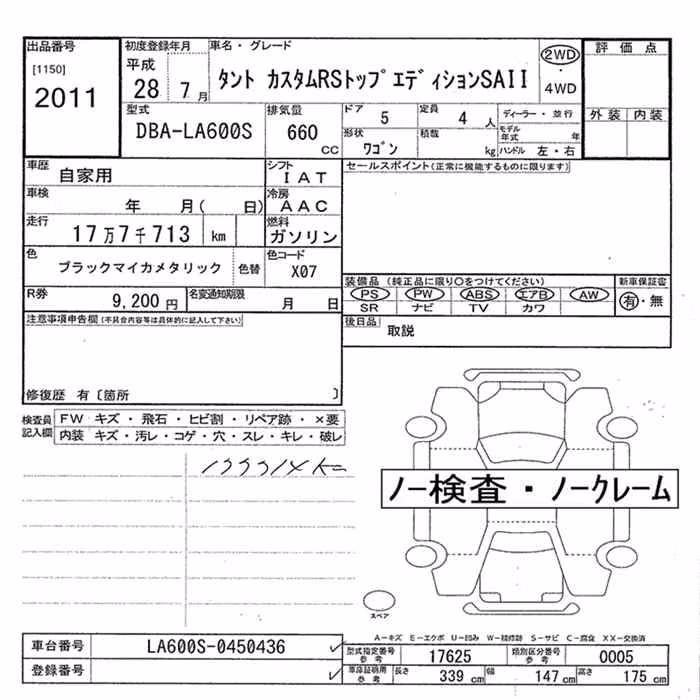 出品番号
[1150]
2011
初度登録年月
平成
28 7月
車名・グレード
タント カスタムRSトップエディションSAII
2WD
・
4WD
評価点
外装 内装
型式
DBA-LA600S
排気量
660
CC
ドア
5
定員
4 人
形状
ワゴン
積載
kg
ディーラー・並行
モデル年式 年
ハンドル 左・右
車歴
自家用
シフト
IAT
車検
年 月( 日)
冷房
AAC
走行
17万7千713 km
燃料
ガソリン
色
ブラックマイカメタリック
色替
色コード
X07
R券
9,200円
名変通知期限
月 日
セールスポイント(正常に機能するものに限ります)
装備品(純正品に限り○をつけてください)
PS PW ABS エアB AW
SR ナビ TV カワ
新車保証書
有・無
後日品
取説
注意事項申告欄(不具合内容等は具体的に記入して下さい)
修復歴 有〔箇所 〕
検査員記入欄
FW キズ・飛石・ヒビ割・リペア跡・×要
内装 キズ・汚レ・コゲ・穴・スレ・キレ・破レ
ノー検査・ノークレーム
スペア
A-キズ E-エクボ U-凹み W-補修跡 S-サビ C-腐食 XX-交換済
車台番号
LA600S-0450436
登録番号
型式指定番号
参考
17625
類別区分番号
参考
0005
車庫証明用
参考
長さ
339 cm
幅
147 cm
高さ
175 cm